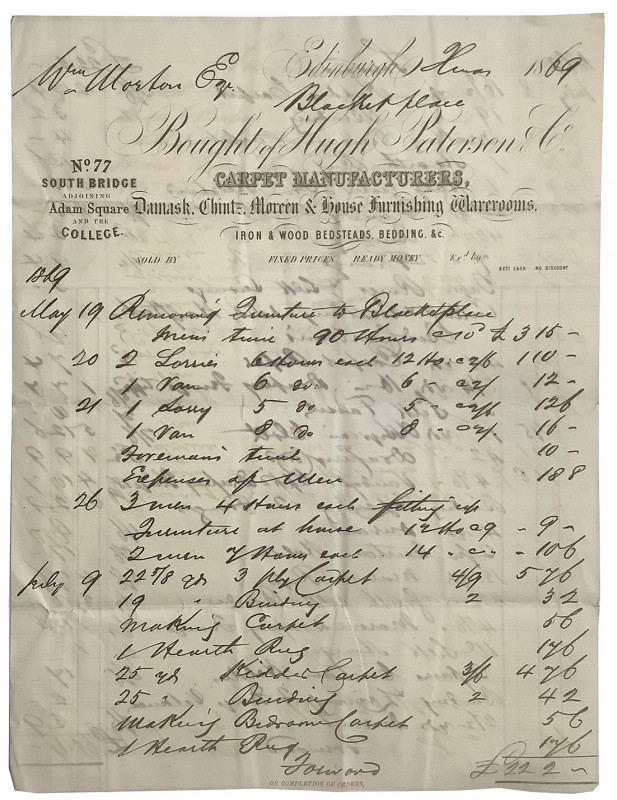 Wm Morton Esqr. Edinburgh Xmas 1869
Blacket place
Bought of Hugh Paterson & Co.
No. 77
SOUTH BRIDGE
ADJOINING
Adam Square
AND THE
COLLEGE.
CARPET MANUFACTURERS,
Damask, Chintz, Moreen & House Furnishing Warerooms.
IRON & WOOD BEDSTEADS, BEDDING, &c.
SOLD BY FIXED PRICES READY MONEY NETT CASH NO DISCOUNT
1869
May 19 Removing Furniture to Blacket place
Mens time 90 Hours @ 10d £ 3 15 –
20 2 Lorries 6 Hours each 12 Ho: @ 2/6 1 10 –
1 Van 6 do: 6 " @ 2/. 12 –
21 1 Lorry 5 do 5 " @ 2/6 12 6
1 Van 8 do 8 " @ 2/. 16 –
Foremans time 10 –
Expenses of Men 18 8
26 3 men 4 Hours each fitting up
Furniture at house 12 Ho @ 9 " 9 –
2 men 7 Hours each 14 " @ " " 10 6
July 9 22 5/8 yds 3 ply Carpet 4/9 5 7 6
19 " Binding 2 3 2
Making Carpet 5 6
1 Hearth Rug 17 6
25 yds Kidder Carpet 3/6 4 7 6
25 " Binding 2 4 2
Making Bedroom Carpet 5 6
1 Hearth Rug 17 6
Forward £ 22 2 –
ON COMPLETION OF ORDERS.